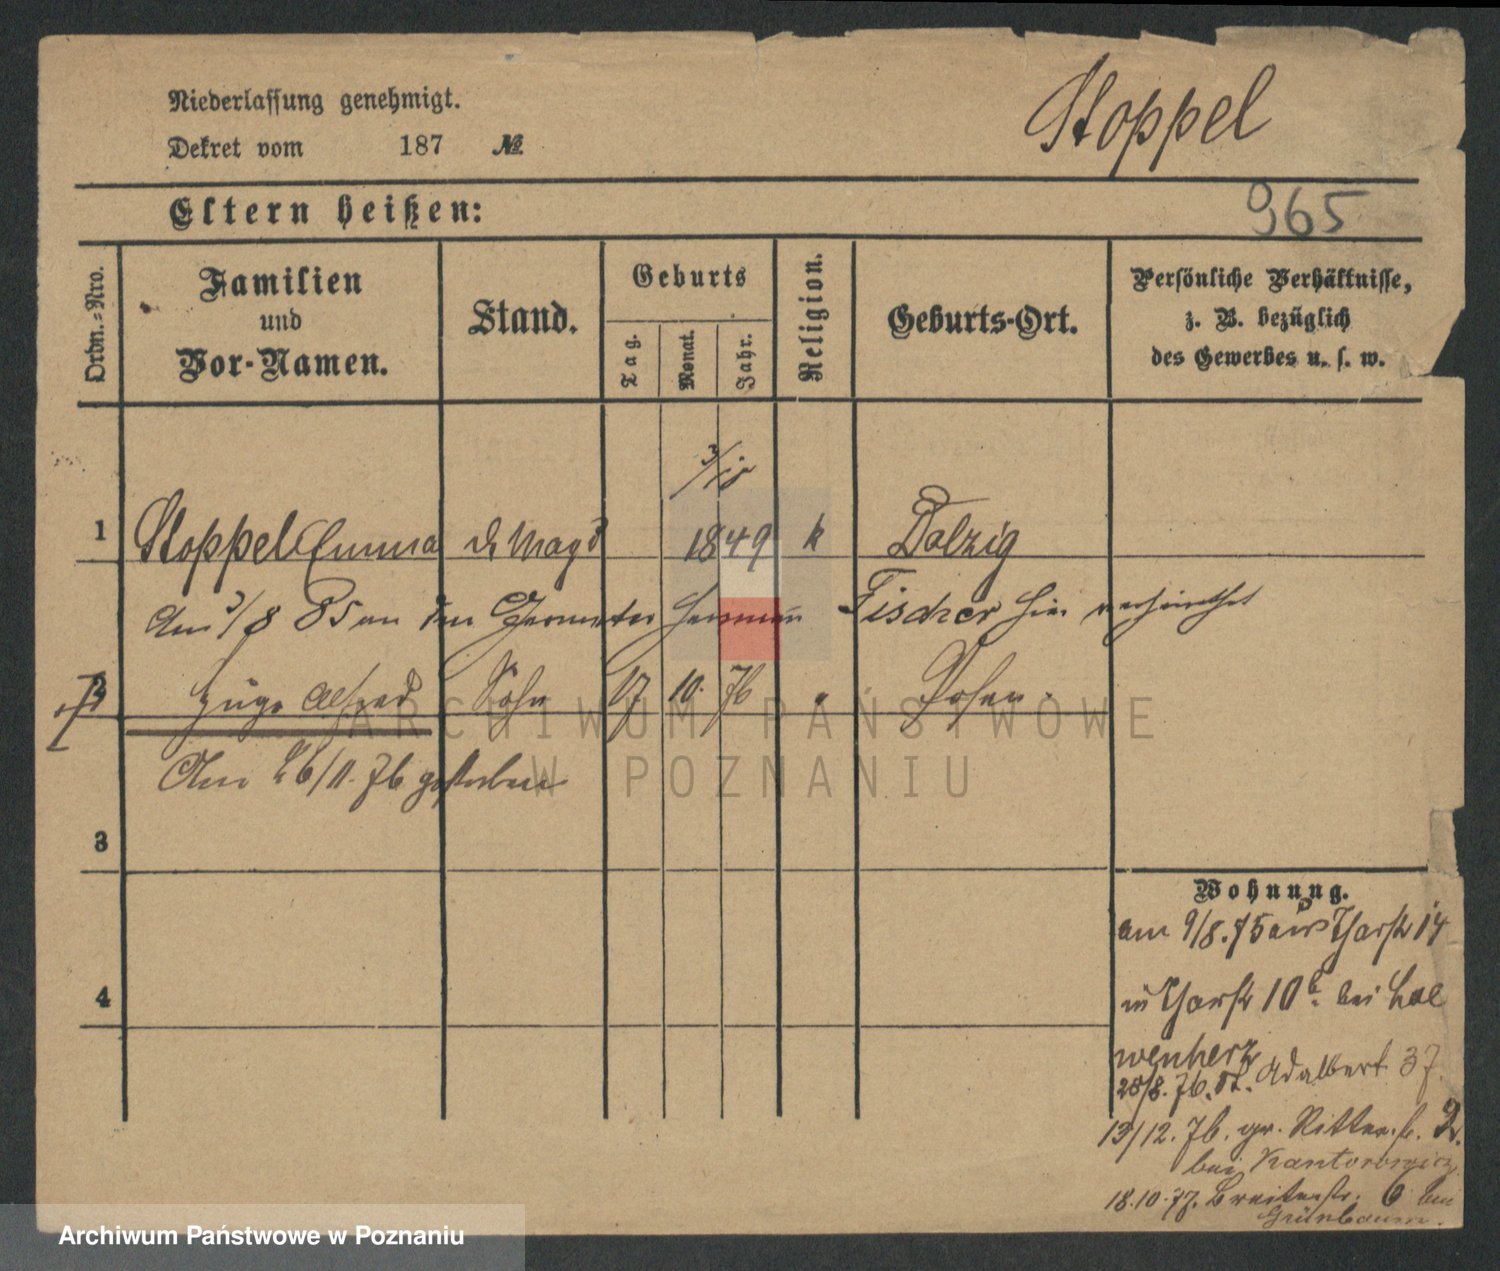 Niederlassung genehmigt.
Dekret vom 187 №
Stoppel
Eltern heißen:
965
Ordn.-Nro.
Familien
und
Vor-Namen.
Stand.
Geburts
Tag.
Monat.
Jahr.
Religion.
Geburts-Ort.
Persönliche Verhältnisse,
z. B. bezüglich
des Gewerbes u. s. w.
1 Stoppel Emma d. Magd 1849 k Dolzig
Am 3/8 85 an den Geometer Hermann Fischer hier verheirathet
2 Hugo Alfred Sohn 17 10. 76 " Posen.
Am 26/11. 76 gestorben
3
4
Wohnung.
am 9/8. 75 aus 14
in 10b. bei Loe
wenherz
28/8. 76. St. Adalbert 37.
13/12. 76. gr. Ritterstr. 2.
bei Kantorowicz
18.10.77. Breitestr. 6 bei
Grünbaum.
ARCHIWUM PAŃSTWOWE
W POZNANIU
Archiwum Państwowe w Poznaniu